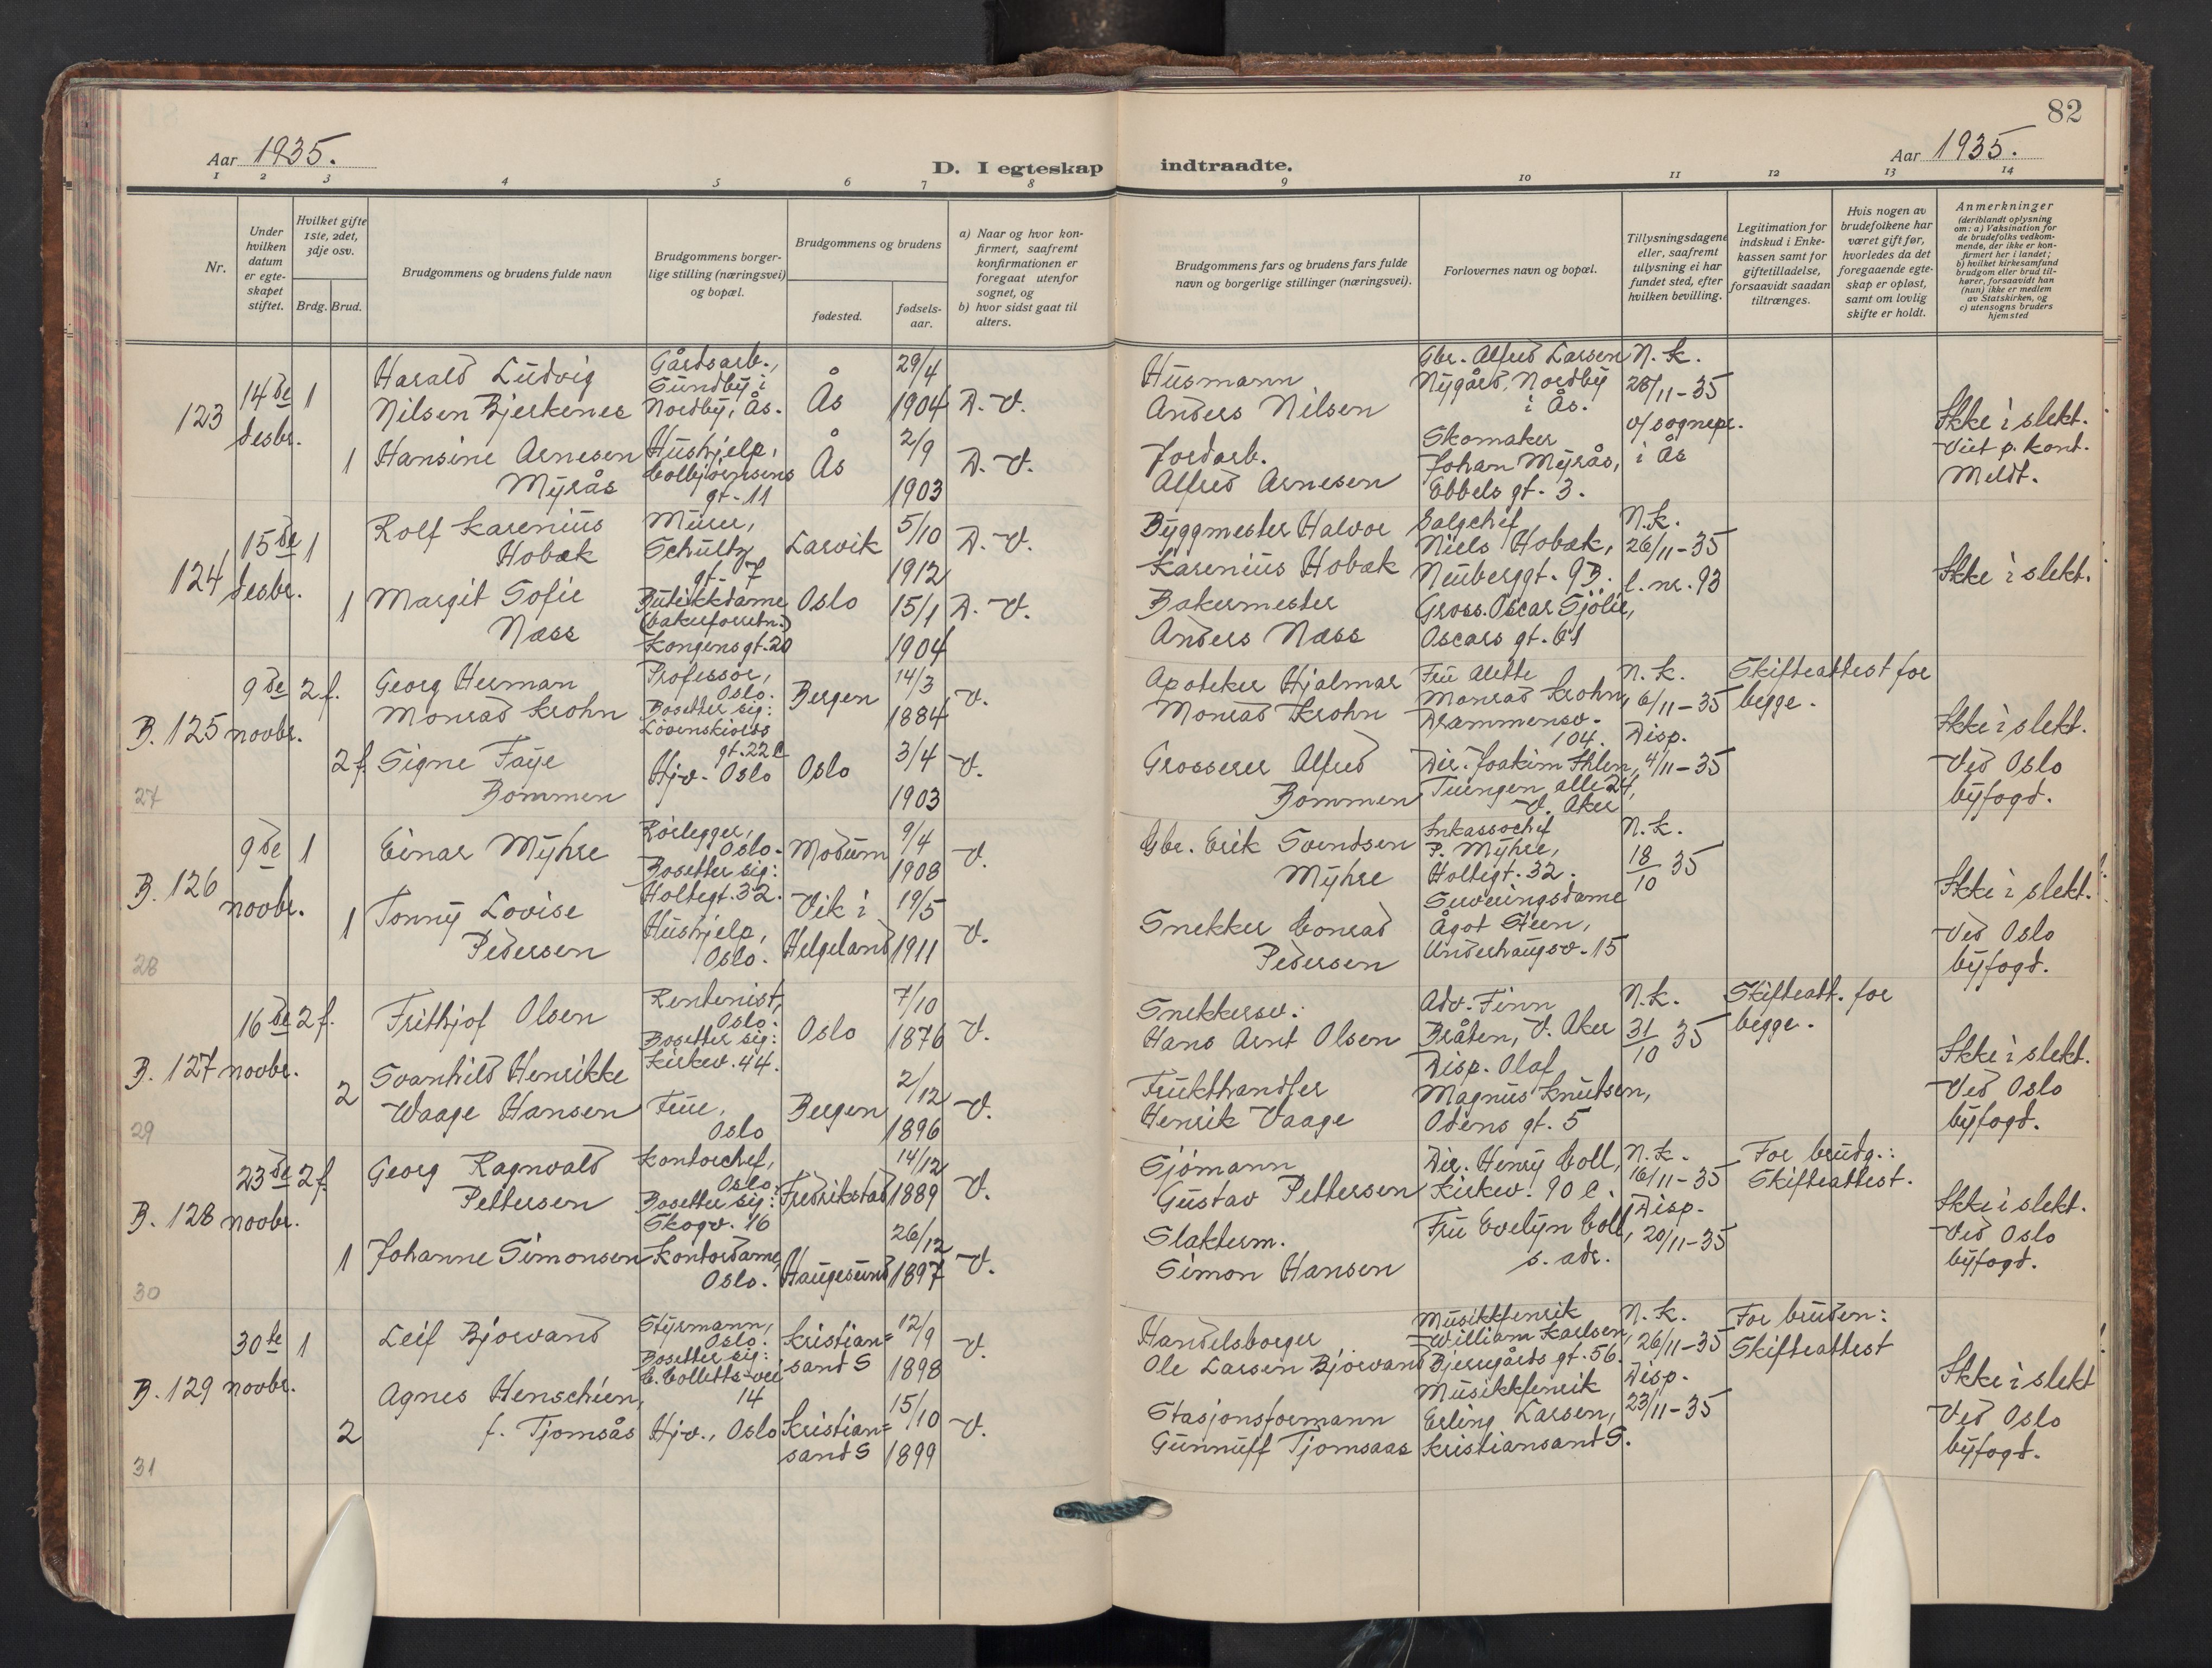 82
Aar 1935.
Aar 1935.
D. I egteskap indtraadte.
1 2 3 4 5 6 7 8 9 10 11 12 13 14
Nr.
Under hvilken datum er egteskapet stiftet.
Hvilket gifte 1ste, 2det, 3dje osv.
Brdg. Brud.
Brudgommens og brudens fulde navn
Brudgommens borgerlige stilling (næringsvei) og bopæl.
Brudgommens og brudens
fødested.
fødselsaar.
a) Naar og hvor konfirmert, saafremt konfirmationen er foregaat utenfor sognet, og
b) hvor sidst gaat til alters.
Brudgommens fars og brudens fars fulde navn og borgerlige stillinger (næringsvei).
Forlovernes navn og bopæl.
Tillysningsdagene eller, saafremt tillysning ei har fundet sted, efter hvilken bevilling.
Legitimation for indskud i Enkekassen samt for giftetilladelse, forsaavidt saadan tiltrænges.
Hvis nogen av brudefolkene har været gift før, hvorledes da det foregaaende egteskap er opløst, samt om lovlig skifte er holdt.
Anmerkninger
(deriblandt oplysning om: a) Vaksination for de brudefolks vedkommende, der ikke er konfirmert her i landet; b) hvilket kirkesamfund brudgom eller brud tilhører, forsaavidt han (hun) ikke er medlem av Statskirken, og c) utensogns bruders hjemsted
123
14de desbr.
1
Harald Ludvig
Nilsen Bjerkenes
Gårdsarb.,
Sundby i
Nordby, Ås.
Ås
29/4
1904
D. V.
Husmann
Anders Nilsen
Gbr. Alfred Larsen
Nygård, Nordby
i Ås.
N. k.
28/11-35
v/ sognepr.
i Ås
1
Hansine Arnesen
Myrås
Hushjelp,
Colbjørnsens
gt. 11
Ås
2/9
1903
D. V.
Jordarb.
Alfred Arnesen
Skomaker
Johan Myrås,
Ebbels gt. 3.
Ikke i slekt.
Viet p. kont.
Meldt.
124
15de desbr.
1
Rolf Karenius
Hobæk
Murer,
Schultz
gt. 7
Larvik
5/10
1912
D. V.
Byggmester Halvor
Karenius Hobæk
Salgchef
Niels Hobæk,
Neuberggt. 9B.
N.k.
26/11-35
l. nr. 93
1
Margit Sofie
Næss
Butikkdame
(bakerforretn.)
Kongensgt. 20
Oslo
15/1
1904
D. V.
Bakermester
Anders Næss
Gross. Oscar Sjölie,
Oscars gt. 61
Ikke i slekt.
B. 125
27
9de novbr.
2 f.
Georg Herman
Monrad Krohn
Professor,
Oslo.
Bosetter sig:
Lövenskiolds
gt. 22 C
Bergen
14/3
1884
V.
Apoteker Hjalmar
Monrad Krohn
Fru Alette
Monrad Krohn,
Drammensv.
104.
N. k.
6/11-35
Disp.
4/11-35
Skifteattest for
begge.
2 f.
Signe Faye
Bommen
Hjv. Oslo
Oslo
3/4
1903
V.
Grosserer Alfred
Bommen
Dir. Joakim Ihlen,
Tuengen alle 24,
V. Aker
Ikke i slekt.
Ved Oslo
byfogd.
B. 126
28
9de novbr.
1
Einar Myhre
Rörlegger,
Oslo.
Bosetter sig:
Holtegt. 32.
Modum
9/4
1908
V.
Gbr. Erik Svendsen
Myhre
Inkassochef
P. Myhre,
Holtegt. 32.
N. k.
18/10 35
1
Tonny Lovise
Pedersen
Hushjelp,
Oslo.
Vik i
Helgeland
19/5
1911
V.
Snekker Conrad
Pedersen
Serveringsdame
Ågot Steen,
Underhaugsv. 15
Ikke i slekt.
Ved Oslo
byfogd.
B. 127
29
16de novbr.
2 f.
Frithjof Olsen
Rentenist,
Oslo.
Bosetter sig:
Kirkev. 44.
Oslo
7/10
1876
V.
Snekkersv.
Hans Arnt Olsen
Adv. Finn
Bråten, V. Aker
N. k.
31/10 35
Skifteatt. for
begge.
2
Svanhild Henrikke
Waage Hansen
Frue,
Oslo
Bergen
2/12
1896
V.
Frukthandler
Henrik Vaage
Disp. Olaf
Magnus Knutsen,
Odens gt. 5
Ikke i slekt.
Ved Oslo
byfogd.
B. 128
30
23de novbr.
2 f.
Georg Ragnvald
Pettersen
Kontorchef,
Oslo.
Bosetter sig:
Skogv. 16
Fredrikstad
14/12
1889
V.
Sjömann
Gustav Pettersen
Dir. Henry Coll,
Kirkev. 90 C.
N. k.
16/11-35
Disp.
20/11-35
For brudg.:
Skifteattest.
1
Johanne Simonsen
Kontordame,
Oslo.
Haugesund
26/12
1897
V.
Slakterm.
Simon Hansen
Fru Evelyn Coll,
s. adr.
Ikke i slekt.
Ved Oslo
byfogd.
B. 129
31
30te novbr.
1
Leif Bjorvand
Styrmann,
Oslo.
Bosetter sig:
C. Colletts-vei
14
Kristian=
sand S
12/9
1898
V.
Handelsborger
Ole Larsen Bjorvand
Musikkfenrik
William Karlsen,
Bjerregårds gt. 56.
N. k.
26/11-35
Disp.
23/11-35
For bruden:
Skifteattest
2
Agnes Henschien,
f. Tjomsås
Hjv., Oslo
Kristian=
sand S
15/10
1899
V.
Stasjonsformann
Gunnuff Tjomsaas
Musikkfenrik
Erling Larsen,
Kristiansand S.
Ikke i slekt
Ved Oslo
byfogd.